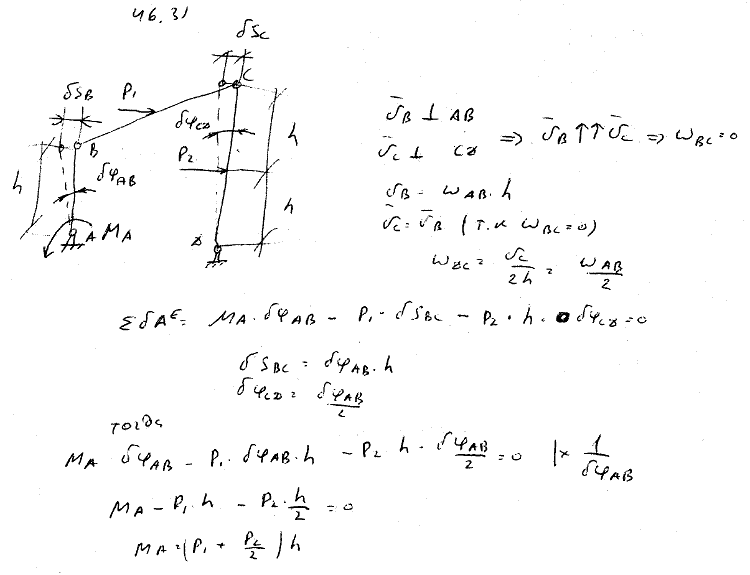 46.31
δSc
δSB
P1
C
B
δφCD
h
P2
h
δφAB
h
A MA
D
v̄B ⊥ AB
v̄C ⊥ CD ⇒ v̄B ↑↑ v̄C ⇒ ωBC = 0
vB = ωAB · h
v̄C = v̄B (т.к ωBC = 0)
ωDC = vC/2h = ωAB/2
Σ δAE = MA · δφAB − P1 · δSBC − P2 · h · δφCD = 0
δSBC = δφAB · h
δφCD = δφAB/2
тогда
MA δφAB − P1 · δφAB · h − P2 h · δφAB/2 = 0 | × 1/δφAB
MA − P1 · h − P2 · h/2 = 0
MA = (P1 + P2/2) h